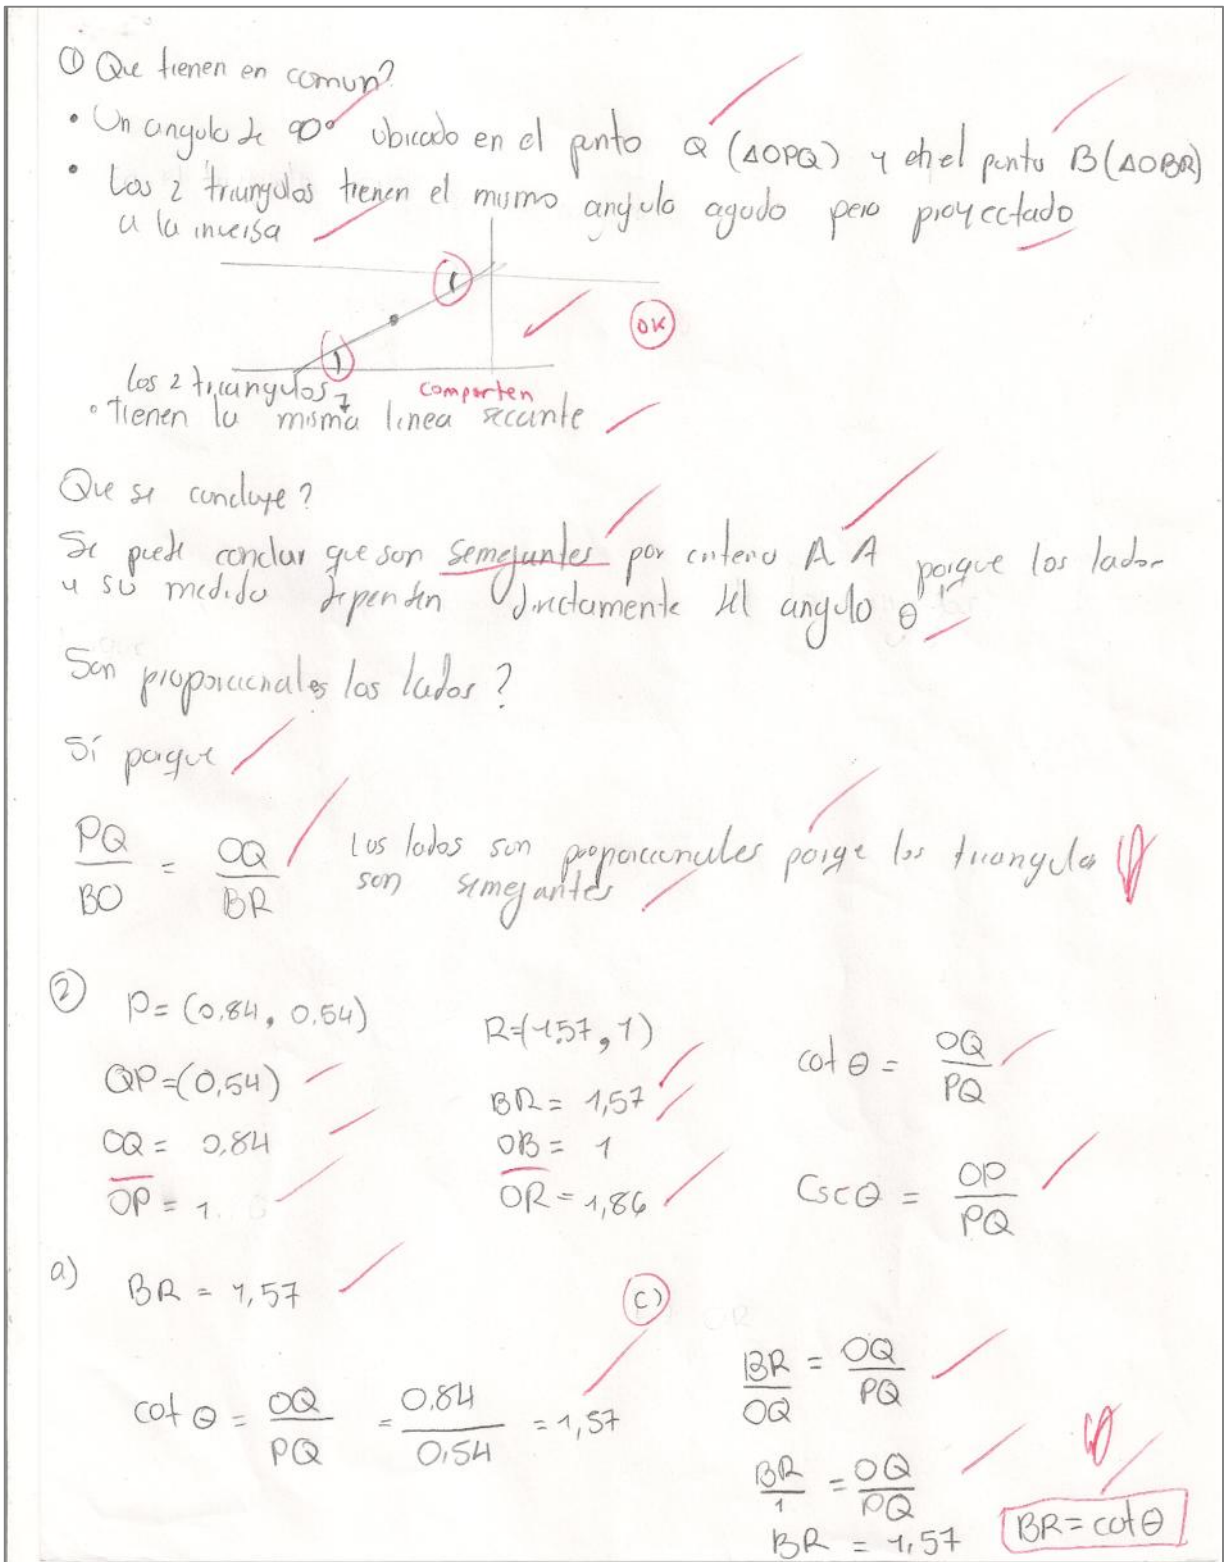 ① Que tienen en comun?
• Un angulo de 90° ubicado en el punto Q (ΔOPQ) y en el punto B (ΔOBR)
• Los 2 triangulos tienen el mismo angulo agudo pero proyectado
a la inversa
OK
Los 2 triangulos
comparten
• tienen la misma linea secante
Que se concluye?
Se puede concluir que son semejantes por criterio A A porque los lados
y su medida dependen directamente del angulo θ
Son proporcionales los lados?
Sí porque
PQ/BO = OQ/BR
Los lados son proporcionales porqe los triangulos
son semejantes
②
P = (0.84, 0.54)
QP = (0,54)
OQ = 0.84
OP = 1
R = (1,57, 1)
BR = 1,57
OB = 1
OR = 1,86
cot θ = OQ/PQ
Csc θ = OP/PQ
a) BR = 1,57
cot θ = OQ/PQ = 0.84/0.54 = 1,57
c)
BR/OQ = OQ/PQ
BR/1 = OQ/PQ
BR = 1,57
BR = cot θ